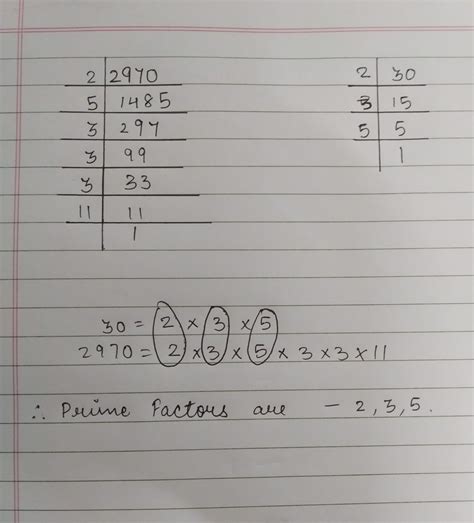 2 | 2970
5 | 1485
3 | 297
3 | 99
3 | 33
11 | 11
1
2 | 30
3 | 15
5 | 5
1
30 = 2 × 3 × 5
2970 = 2 × 3 × 5 × 3 × 3 × 11
∴ Prime Factors are - 2, 3, 5.